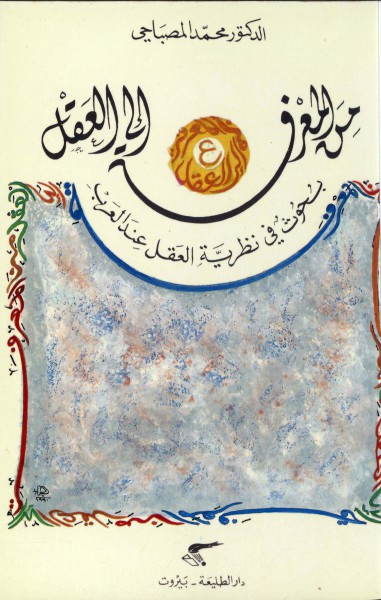 الدكتور محمد المصباحي
من المعرفة إلى العقل
بحوث في نظرية العقل عند العرب
دار الطليعة - بيروت